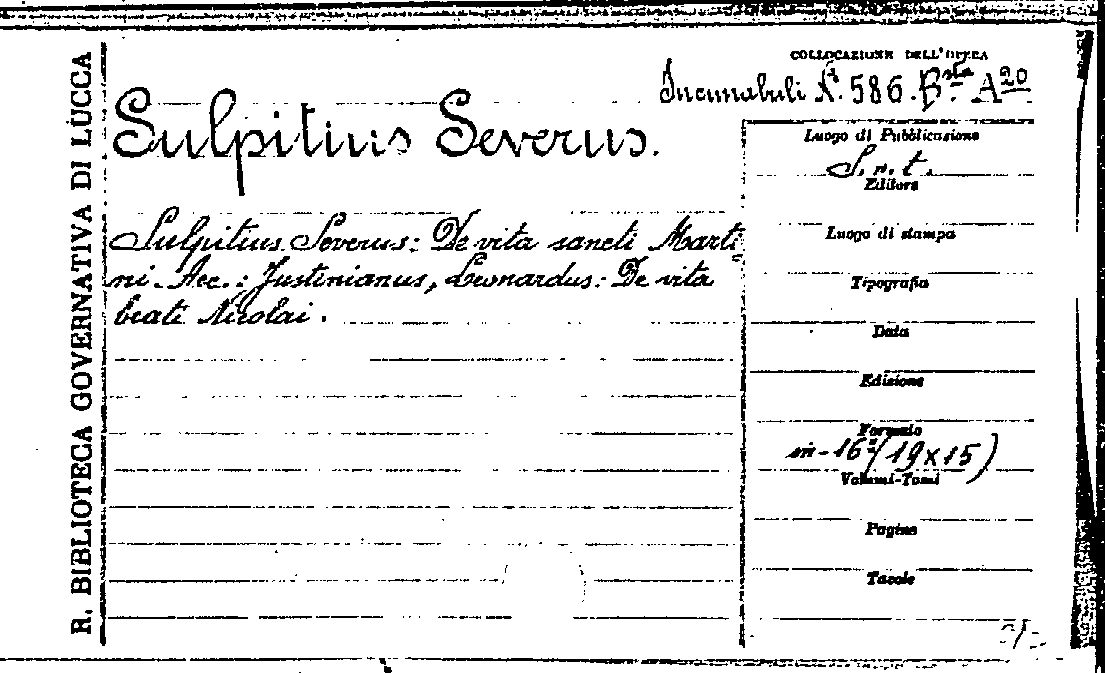 R. BIBLIOTECA GOVERNATIVA DI LUCCA
COLLOCAZIONE DELL'OPERA
Incunabuli N. 586. Bsta A20
Sulpitius Severus.
Luogo di Pubblicazione
S. n. t.
Editore
Luogo di stampa
Tipografia
Data
Edizione
Formato
in-16° (19x15)
Volumi-Tomi
Pagine
Tavole
Sulpitius Severus: De vita sancti Marti-
ni. Acc.: Justinianus, Leonardus: De vita
beati Nicolai.